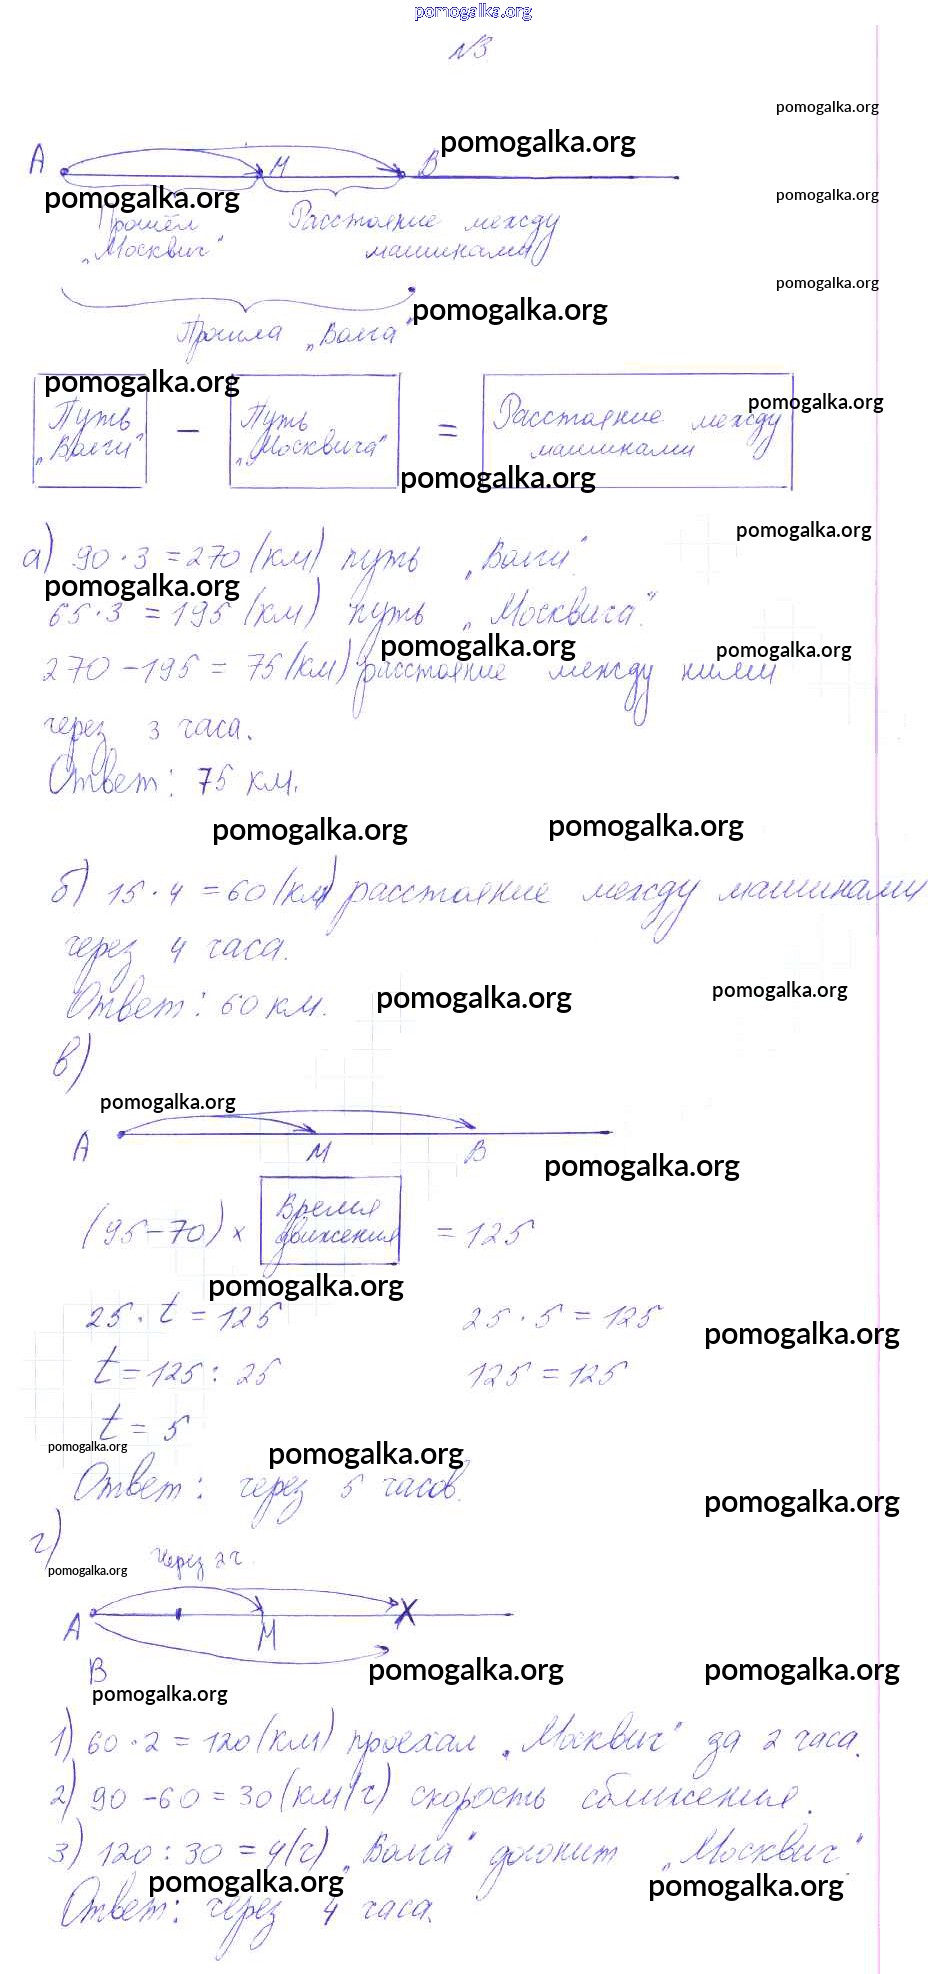 pomogalka.org
№3
pomogalka.org
A M B pomogalka.org
pomogalka.org pomogalka.org
Прошёл Расстояние между
„Москвич" машинами
pomogalka.org
pomogalka.org
Прошла „Волга"
pomogalka.org pomogalka.org
Путь „Волги" – Путь „Москвича" = Расстояние между машинами
pomogalka.org
pomogalka.org
а) 90 · 3 = 270 (км) путь „Волги".
pomogalka.org
65 · 3 = 195 (км) путь „Москвича".
pomogalka.org pomogalka.org
270 – 195 = 75 (км) расстояние между ними
через 3 часа.
Ответ: 75 км.
pomogalka.org pomogalka.org
б) 15 · 4 = 60 (км) расстояние между машинами
через 4 часа.
Ответ: 60 км. pomogalka.org pomogalka.org
в)
pomogalka.org
A M B
pomogalka.org
(95 – 70) × Время движения = 125
pomogalka.org
25 · t = 125 25 · 5 = 125
pomogalka.org
t = 125 : 25 125 = 125
t = 5
pomogalka.org pomogalka.org
Ответ: через 5 часов.
pomogalka.org
г) Через 2 ч.
pomogalka.org
A M
B pomogalka.org pomogalka.org
pomogalka.org
1) 60 · 2 = 120 (км) проехал „Москвич" за 2 часа.
2) 90 – 60 = 30 (км/ч) скорость сближения.
3) 120 : 30 = 4 (ч) „Волга" догонит „Москвич"
pomogalka.org pomogalka.org
Ответ: через 4 часа.